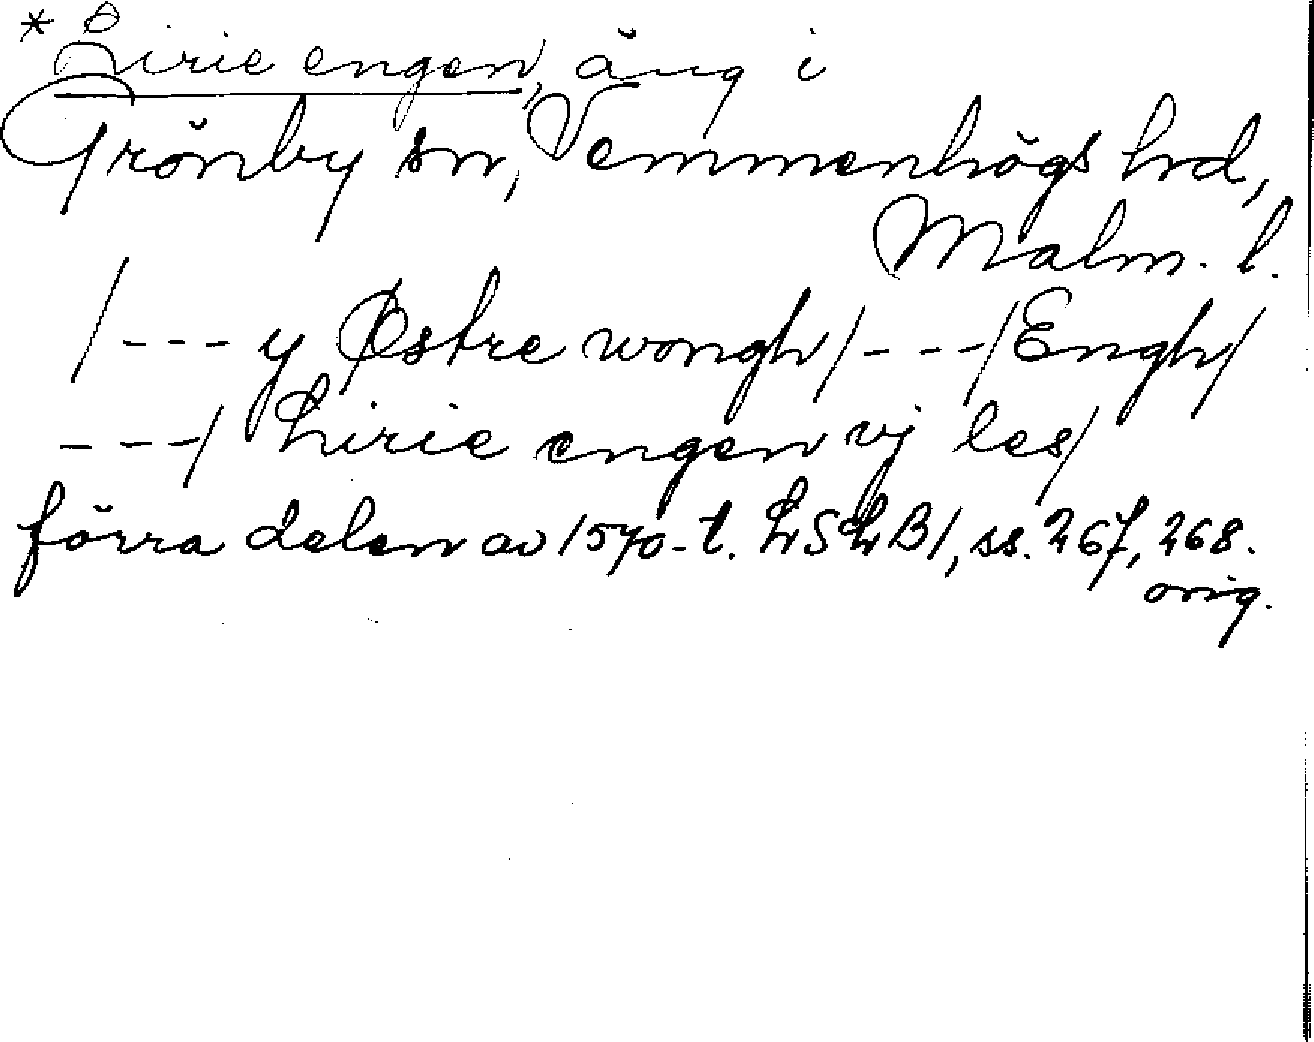 * Lirie engen, äng i
Grönby sn, Vemmenhögs hrd,
Malm. l.
/--- y Østre wongh/---/Engh/
---/ Lirie engen vj les/
förra delen av 1570-t. LSLB1, ss. 267, 268.
orig.